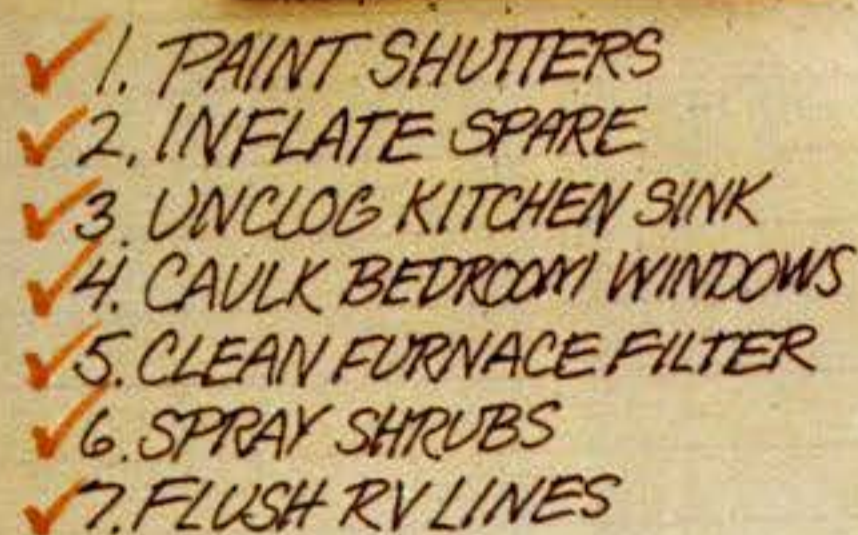 ✓ 1. PAINT SHUTTERS
✓ 2. INFLATE SPARE
✓ 3. UNCLOG KITCHEN SINK
✓ 4. CAULK BEDROOM WINDOWS
✓ 5. CLEAN FURNACE FILTER
✓ 6. SPRAY SHRUBS
✓ 7. FLUSH RV LINES